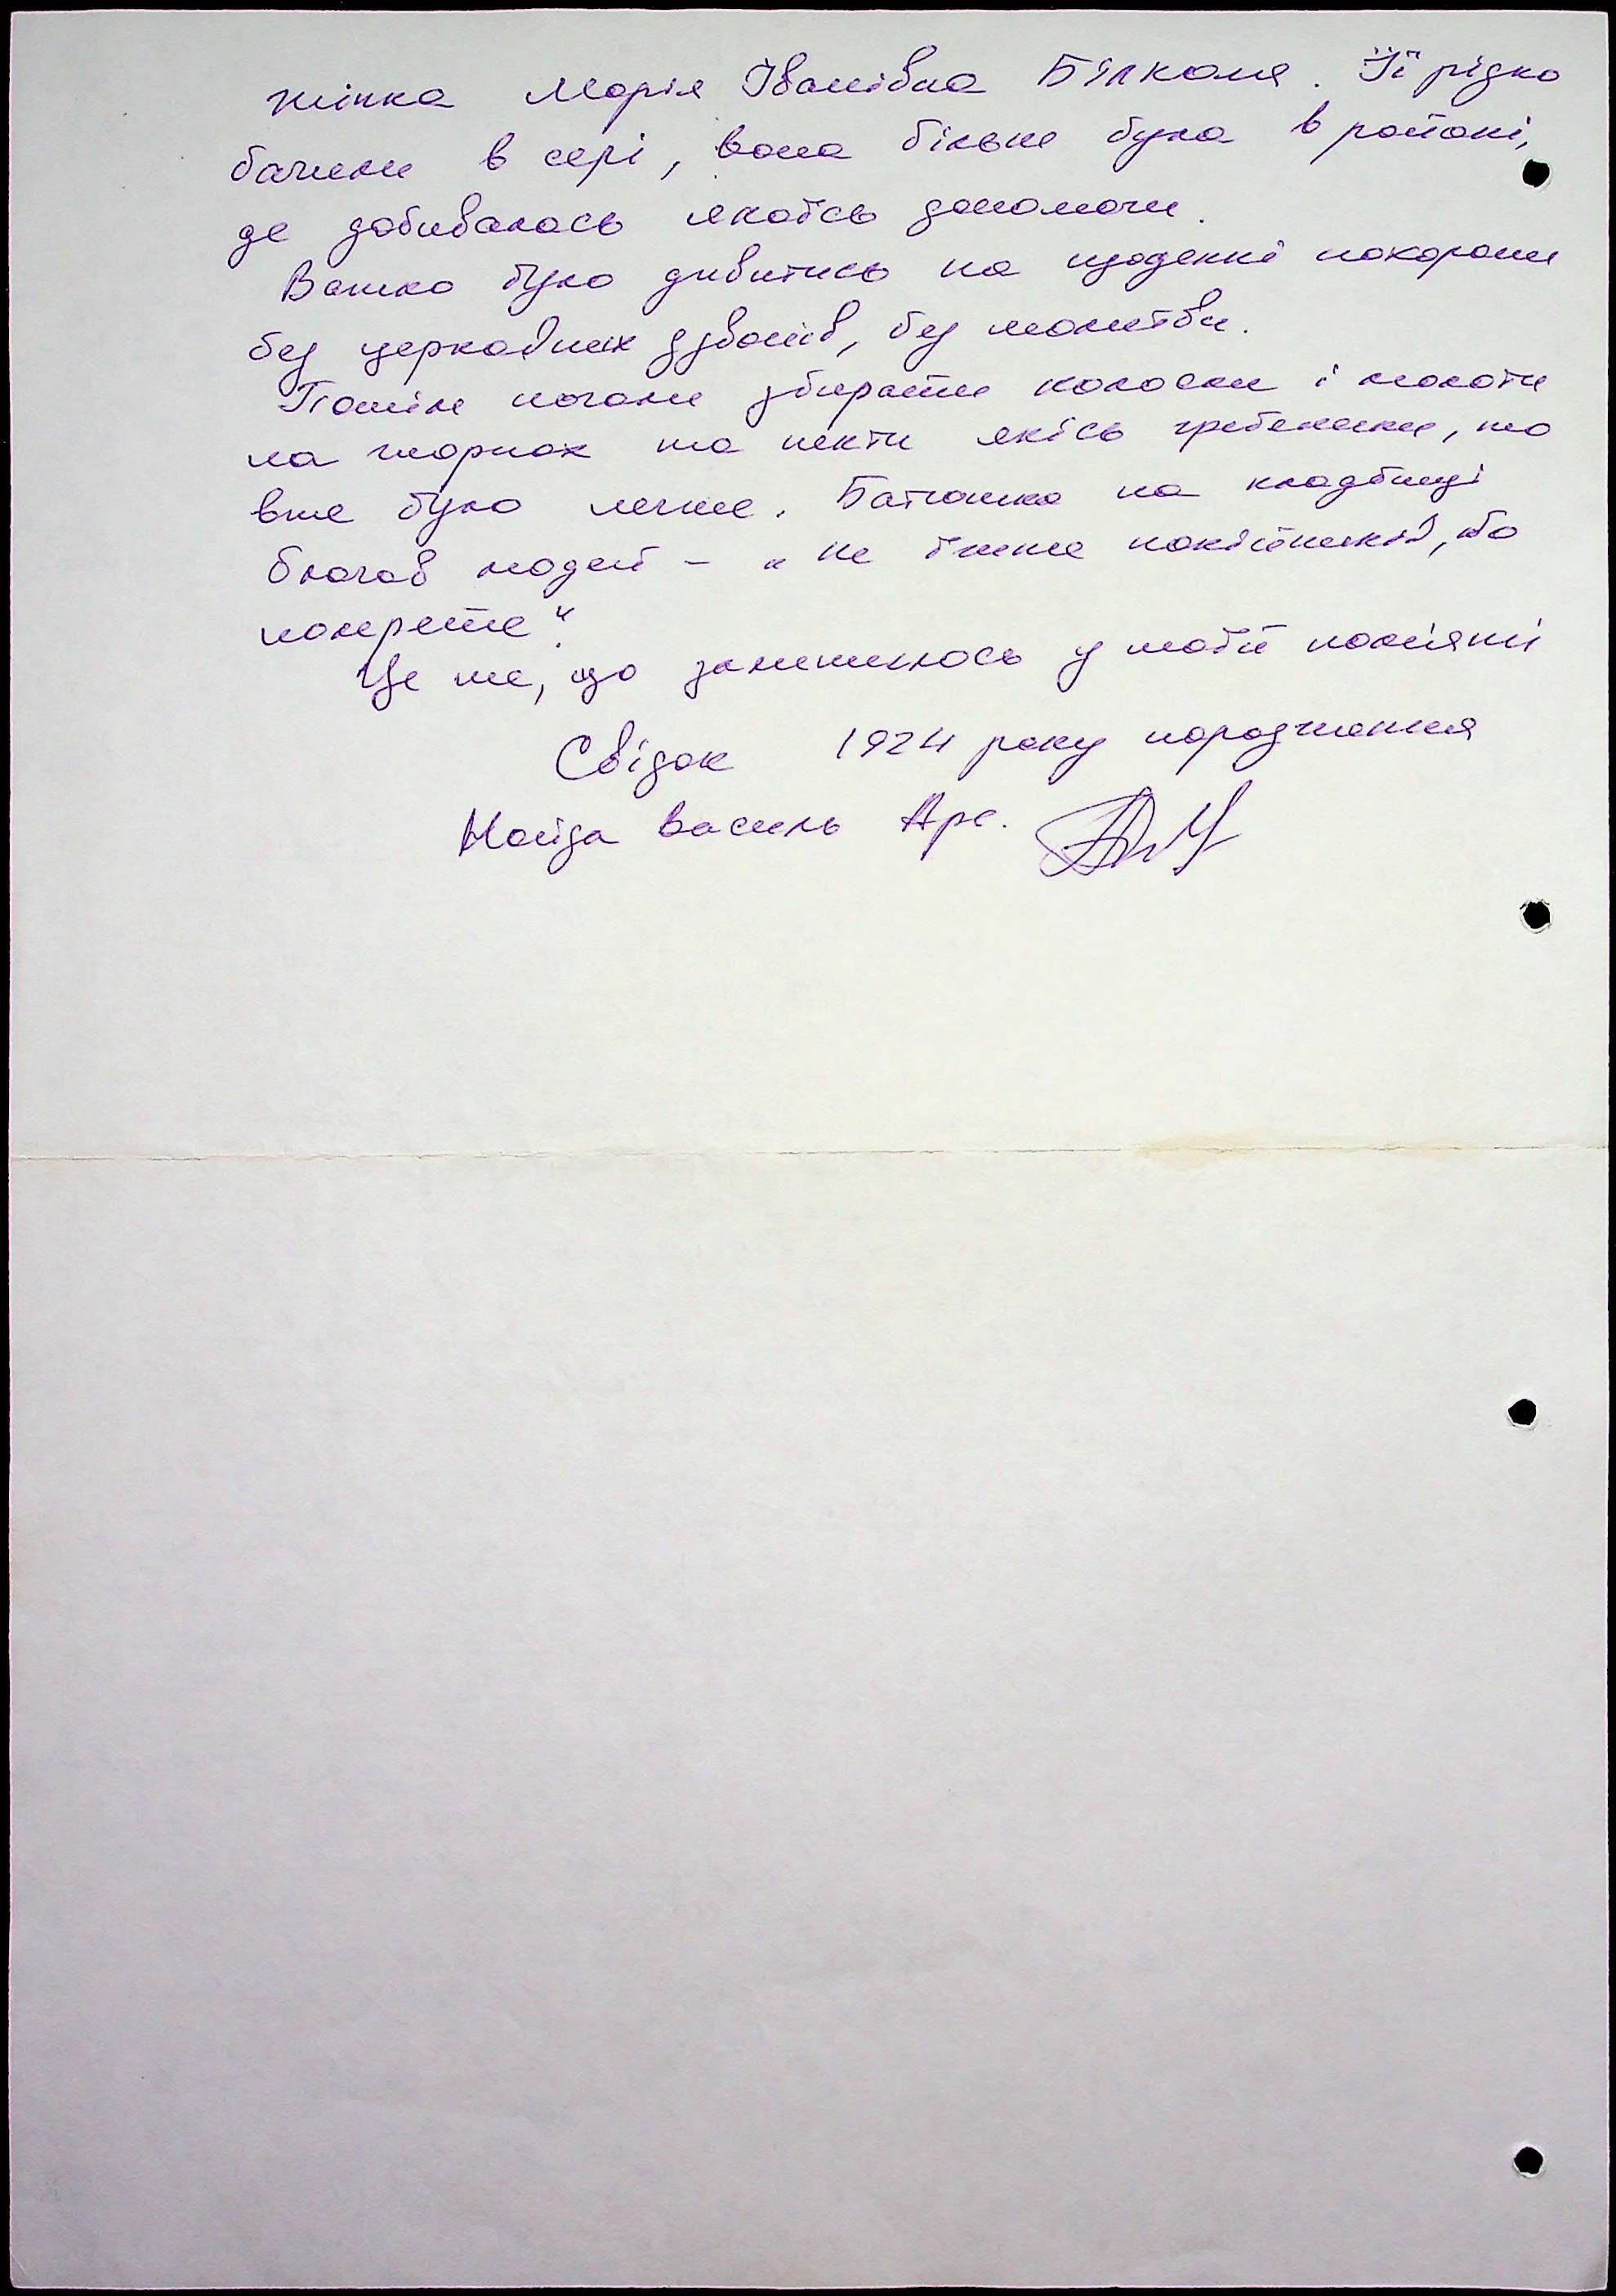 жінка Марія Іванівна Білконя. Її рідко
бачили в селі, вона більше була в районі,
де добивалась якоїсь допомоги.
Важко було дивитись на щоденні похорони
без церковних дзвонів, без молитви.
Потім почали збирати колоски і молоти
на жорнах та пекти якісь гребеники, то
вже було легше. Батюшка на кладбищі
благав людей – „не їжте покійників, бо
помрете“.
Це те, що залишилось у моїй пам'яті
Свідок 1924 року народження
Найда Василь Арс.